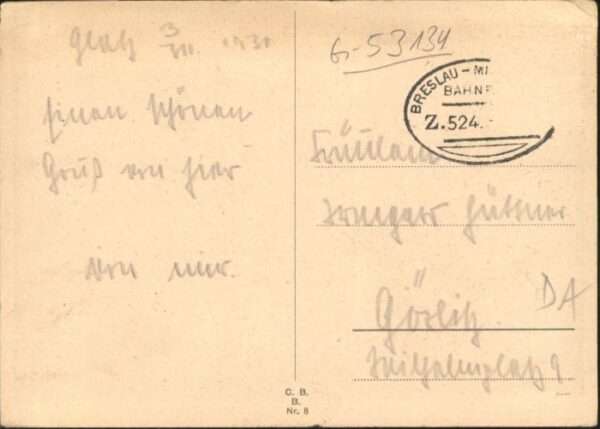 Glatz 3
Einen schönen
Gruß von hier
von mir.
6-53134
BRESLAU - MI
BAHNP
Z.524.
Fräulein
Irmgard Hüttner
Görlitz
DA
Wilhelmplatz 9
C. B.
B.
Nr. 8